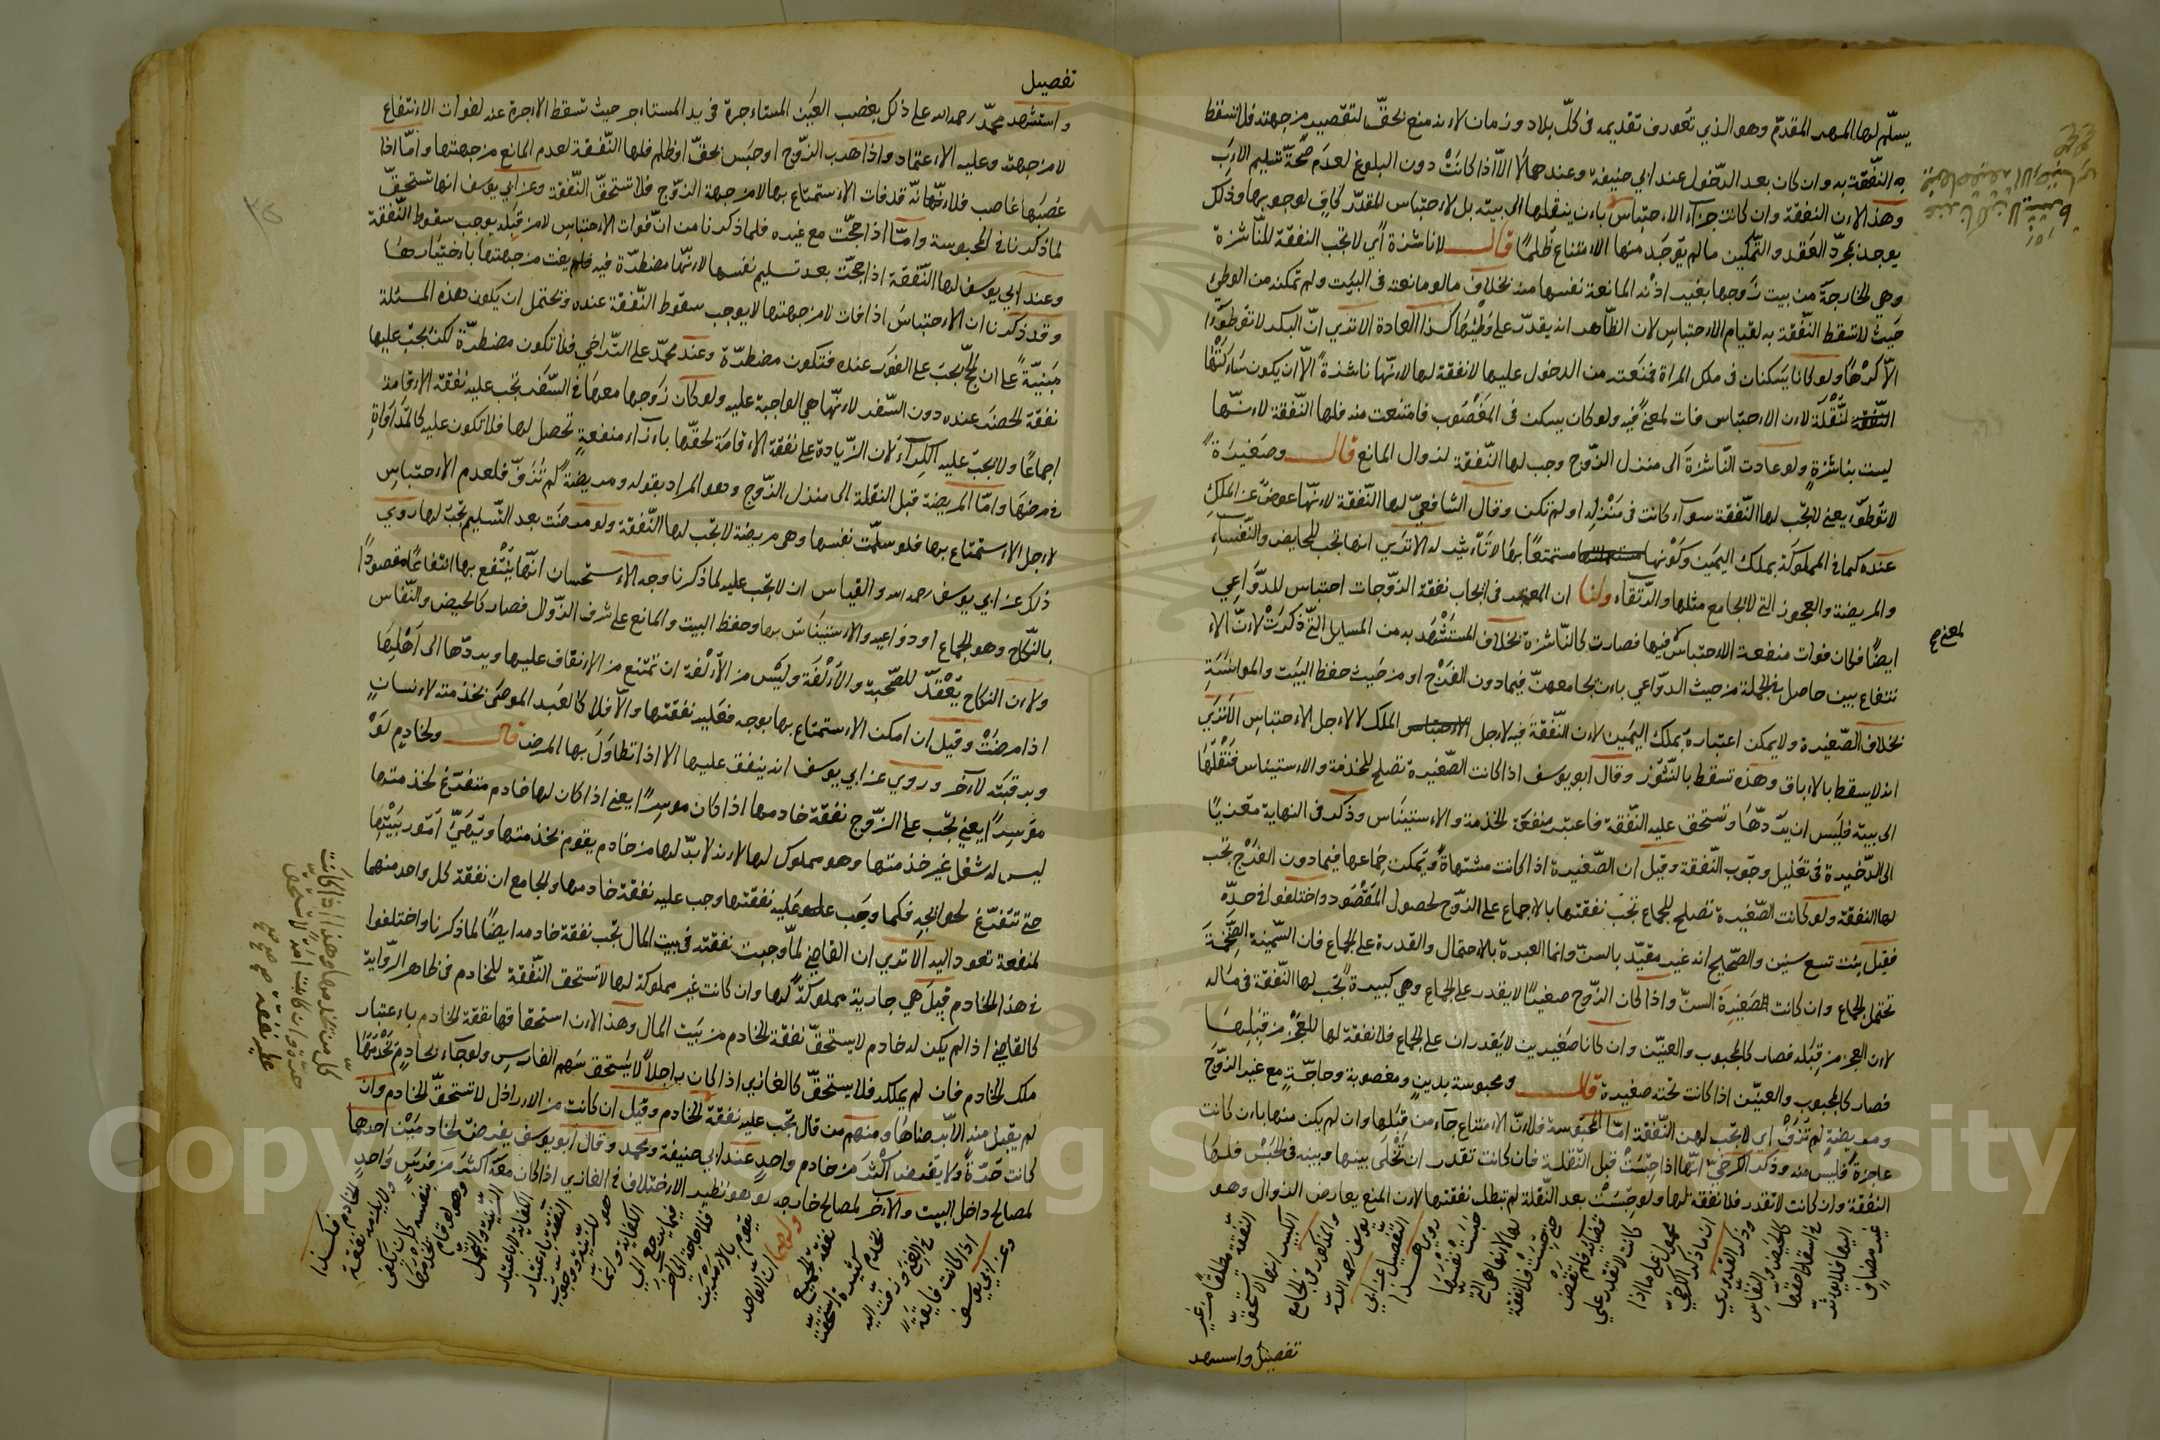 يسلّم لها المهر المقدّم وهو الذي تعورف تقديمه في كلّ بلاد وزمان لانه منع بحقّ لتقصير من جهته فلا تسقط
به النفقة وان كان بعد الدخول عند ابي حنيفة وعندهما لا الا اذا كانت دون البلوغ لعدم صحة تسليم الاب
وهذا لان النفقة وان كانت جزاء الاحتباس بان ينقلها الى بيته بل لاحتباس المقدّر كاف لوجوبها وذلك
يوجد بمجرّد العقد والتمكين ما لم يوجد منها الامتناع ظلمًا قال لا ناشزة أي لا تجب النفقة للناشزة
وهي الخارجة من بيت زوجها بغير اذنه المانعة نفسها منه بخلاف ما لو مانعته في البيت ولم تمكنه من الوطئ
حيث لا تسقط النفقة به لقيام الاحتباس لان الظاهر انه يقدر على وطئها كذا العادة الا ترى انّ البكر لا توطؤ
الا كرهًا ولو كانا يسكنان في ملك المراة فمنعته من الدخول عليها لا نفقة لها لانها ناشزة الا ان يكون سألته
النقلة لان الاحتباس فات لمعنى فيه ولو كان يسكن في المغصوب فامتنعت منه فلها النفقة لانها
ليست بناشزة ولو عادت الناشزة الى منزل الزوج وجب لها النفقة لزوال المانع قال وصغيرة
لا توطؤ يعني لا تجب لها النفقة سواء كانت في منزله او لم تكن وقال الشافعي لها النفقة لانها عوض عن الملك
عنده كما في المملوكة بملك اليمين وكونها مستمتعًا بها لا تاثير له الا ترى انها تجب للحايض والنفساء
والمريضة والعجوز التي لا يجامع مثلها والرتقاء ولنا ان المعتبر في ايجاب نفقة الزوجات احتباس للدواعي
ايضًا فكان فوات منفعة الاحتباس فيها فصارت كالناشزة بخلاف المستشهد به من المسايل التي ذكرت لان الا
نتفاع بهن حاصل في الجملة من حيث الدواعي بان يجامعهن فيما دون الفرج او من حيث حفظ البيت والموانسة
بخلاف الصغيرة ولا يمكن اعتباره بملك اليمين لان النفقة فيه لاجل الملك لا لاجل الاحتباس الا ترى
انه لا يسقط بالاباق وهذه تسقط بالنشوز وقال ابو يوسف اذا كانت الصغيرة تصلح للخدمة والاستيناس فنقلها
الى بيته فليس ان يردّها وتستحق عليه النفقة فاعتبر منفعة الخدمة والاستيناس وذكر في النهاية معزيًا
الى الذخيرة في تعليل وجوب النفقة وقيل ان الصغيرة اذا كانت مشتهاة ويمكن جماعها فيما دون الفرج تجب
لها النفقة ولو كانت الصغيرة تصلح للجماع تجب نفقتها بالاجماع على الزوج لحصول المقصود واختلفوا في حدّه
فقيل بنت تسع سنين والصحيح انه غير مقيّد بالسن وانما العبرة بالاحتمال والقدرة على الجماع فان السمينة الضخمة
تحتمل الجماع وان كانت صغيرة السن واذا كان الزوج صغيرًا لا يقدر على الجماع وهي كبيرة تجب لها النفقة في ماله
لان العجز من قبله فصار كالمجبوب والعنين وان كانا صغيرين لا يقدران على الجماع فلا نفقة لها للعجز من قبلها
فصار كالمجبوب والعنين اذا كانت تحته صغيرة قال ومحبوسة بدين ومغصوبة وحاجّة مع غير الزوج
ومريضة لم تزف أي لا تجب لهن النفقة امّا المحبوسة فلان الامتناع جاء من قبلها وان لم يكن منها بان كانت
عاجزة فليس منه وذكر الكرخي انها اذا حبست قبل النقلة فان كانت تقدر ان تخلى بينها وبينه في الحبس فلها
النفقة وان كانت لا تقدر فلا نفقة لها ولو حبست بعد النقلة لم تبطل نفقتها لان المنع يعارض الزوال وهو
غير مضاف
اليها فلا يؤثر
في اسقاط حقها
كالحيض و
النفاس
وذكر القدوري
ان ما ذكره الكرخي
محمول على ما اذا
كانت لا تقدر على
قضائه فلم تقض
حتى حبست فلا نفقة
لها لانها هي التي
حبست نفسها
روى هذا
التفصيل عن ابي
يوسف رحمه الله
والمذكور في الجامع
الكبير انها لا تستحق
النفقة مطلقًا من غير
تفصيل واستشهد
لمعنى صح
تفصيل
واستشهد محمد رحمه الله على ذلك بغصب العين المستاجرة في يد المستاجر حيث تسقط الاجرة عنه لفوات الانتفاع
لا من جهته وعليه الاعتماد واذا هرب الزوج او حبس بحق او ظلم فلها النفقة لعدم المانع من جهتها وامّا اذا
غصبها غاصب فلانه قد فات الاستمتاع بها لا من جهة الزوج فلا تستحق النفقة وعن ابي يوسف انها تستحق
لما ذكرنا في المحبوسة وامّا اذا حجّت مع غيره فلما ذكرنا من انّ فوات الاحتباس لا من قبله يوجب سقوط النفقة
وعند ابي يوسف لها النفقة اذا حجّت بعد تسليم نفسها لانها مضطرة فيه فلم يفت من جهتها باختيارها
وقد ذكرنا ان الاحتباس اذا فات لا من جهتها لا يوجب سقوط النفقة عنده ويحتمل ان يكون هذه المسئلة
مبنيّة على ان الحج يجب على الفور عنده فتكون مضطرة وعند محمد على التراخي فلا تكون مضطرة لكن يجب عليها
نفقة الحضر عنده دون السفر لانها هي الواجبة عليه ولو كان زوجها معها في السفر تجب عليه نفقة الاقامة
اجماعًا ولا يجب عليه الكراء لان الزيادة على نفقة الاقامة لحقها بازاء منفعة تحصل لها فلا تكون عليه كالمداواة
في مرضها وامّا المريضة قبل النقلة الى منزل الزوج وهو المراد بقوله ومريضة لم تزف فلعدم الاحتباس
لاجل الاستمتاع بها فلو سلّمت نفسها وهي مريضة لا تجب لها النفقة ولو مرضت بعد التسليم تجب لها روي
ذلك عن ابي يوسف رحمه الله والقياس ان لا تجب عليه لما ذكرنا وجه الاستحسان انها ينتفع بها انتفاعًا مقصودًا
بالنكاح وهو الجماع او دواعيه والاستيناس بها وحفظ البيت والمانع على شرف الزوال فصار كالحيض والنفاس
ولان النكاح يعقد للصحبة والالفة وليس من الالفة ان تمتنع من الانفاق عليها ويردّها الى اهلها
اذا مرضت وقيل ان امكن الاستمتاع بها بوجه فعليه نفقتها والا فلا كالعبد الموصى بخدمته لانسان
وبرقبته لآخر وروي عن ابي يوسف انه ينفق عليها الا اذا تطاول بها المرض قال ولخادم لو
موسرًا يعني تجب على الزوج نفقة خادمها اذا كان موسرًا يعني اذا كان لها خادم متفرغ لخدمتها
ليس له شغل غير خدمتها وهو مملوك لها لانه لا بدّ لها من خادم يقوم بخدمتها ويهيّئ امور بيتها
حتى تتفرّغ لحوائجه فكما وجب عليه نفقتها وجب عليه نفقة خادمها والجامع ان نفقة كل واحد منهما
لمنفعة تعود اليه الا ترى ان القاضي لمّا وجبت نفقته في بيت المال تجب نفقة خادمه ايضًا لما ذكرنا واختلفوا
في هذا الخادم قيل هي جارية مملوكة لها وان كانت غير مملوكة لها لا تستحق النفقة للخادم في ظاهر الرواية
كالقاضي اذا لم يكن له خادم لا يستحق نفقة الخادم من بيت المال وهذا لان استحقاقها نفقة الخادم باعتبار
ملك الخادم فان لم يملكه فلا يستحق كالغازي اذا كان راجلًا لا يستحق سهم الفارس ولو جاء بخادم تخدمها
لم يقبل منه الا برضاها ومنهم من قال تجب عليه نفقة الخادم وقيل ان كانت من الاراذل لا تستحق الخادم وان
كانت حرّة ولا يفرض اكثر من خادم واحد عند ابي حنيفة ومحمد وقال ابو يوسف يفرض لخادمين احدهما
لمصالح داخل البيت والآخر لمصالح خارجه وهو نظير الاختلاف في الغازي اذا كان معه اكثر من فرس واحد
وعن ابي يوسف
اذا كانت فايقة
في الغنى وزفت اليه
بخدم كثيرة استحقت
نفقة الجميع
ولهما ان الواحد
يقوم بالامرين
فلا حاجة الى آخر
فيما يرجع الى
الكفاية وانما
هو للزينة ووجوب
النفقة باعتبار
الكفاية لا باعتبار
الزينة والتجمل
وهو لو قام
بنفسه بخدمتها
كان يكفي
ولا يلزمه نفقة
الخادم فكذا
كل من يخدمها وهذا اذا كانت
حرة وان كانت امة لا تستحق
عليه نفقته صح صح صح